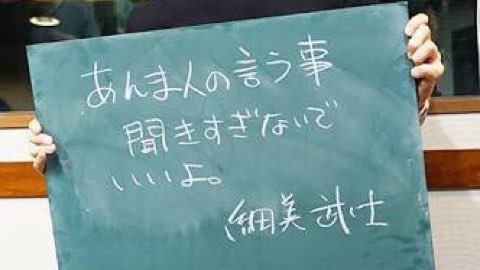 あんま人の言う事
聞きすぎないで
いいよ。
細美武士